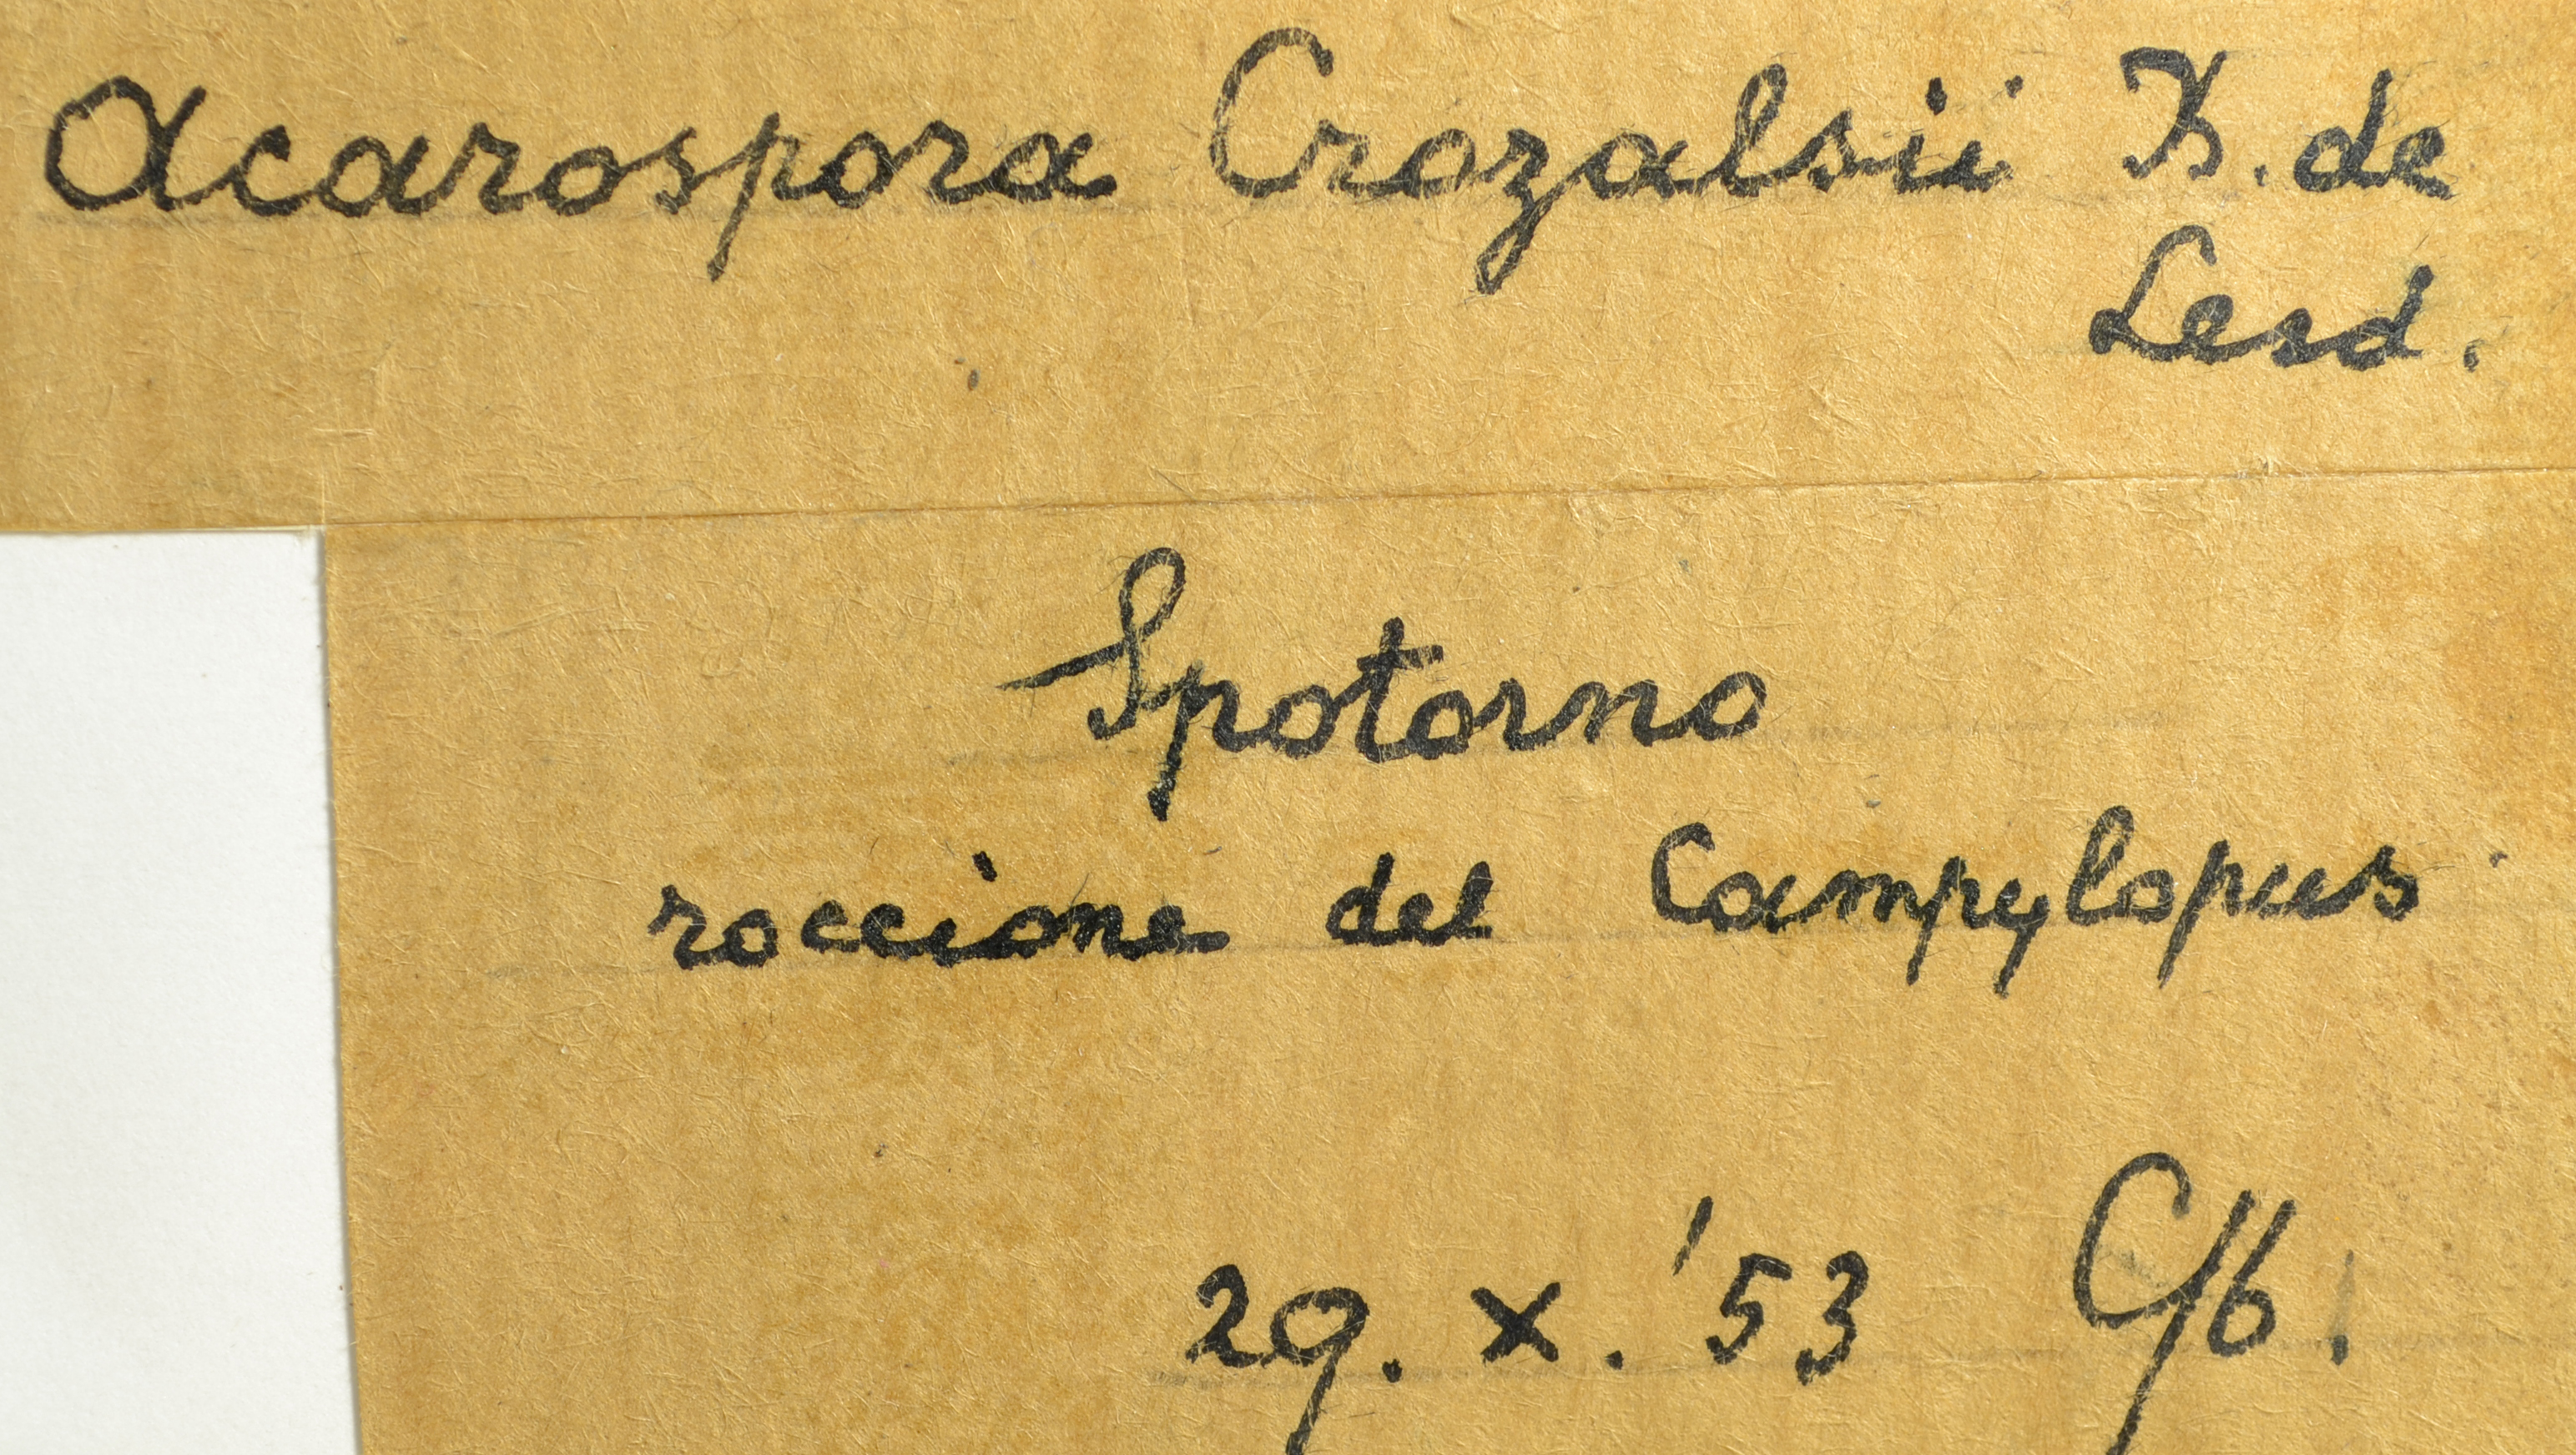 Acarospora Crozalsii B. de
Lesd.
Spotorno
roccione del Campylopus
29. X. '53